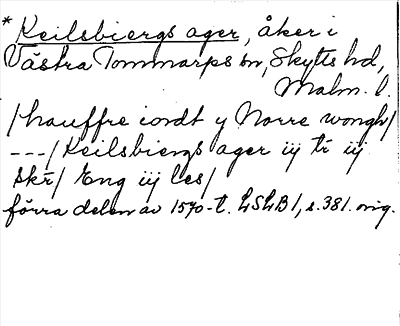 *Keilsbiergs ager, åker i
Västra Tommarps sn, Skytts hd,
Malm. l.
/hauffre iordt y Norre wongh/
---/Keilsbiergs ager iij tr iij
skr/ Eng iij les/
förra delen av 1570-t. LSLB1, s. 381. orig.